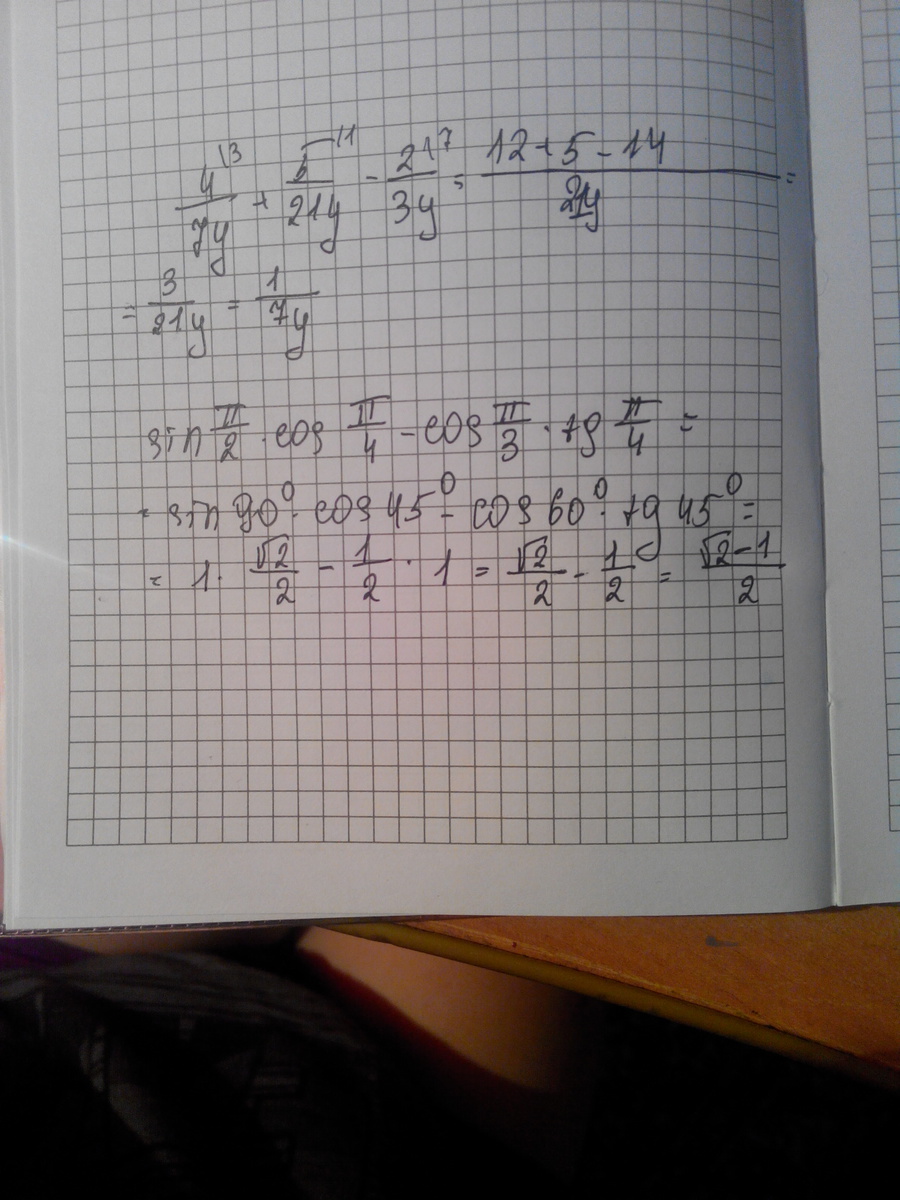 4^{\3}/7y + 5^{\1}/21y - 2^{\7}/3y = (12 + 5 - 14)/21y =
= 3/21y = 1/7y
sin π/2 · cos π/4 - cos π/3 · tg π/4 =
= sin 90° · cos 45° - cos 60° · tg 45° =
= 1 · √2/2 - 1/2 · 1 = √2/2 - 1/2 = (√2-1)/2